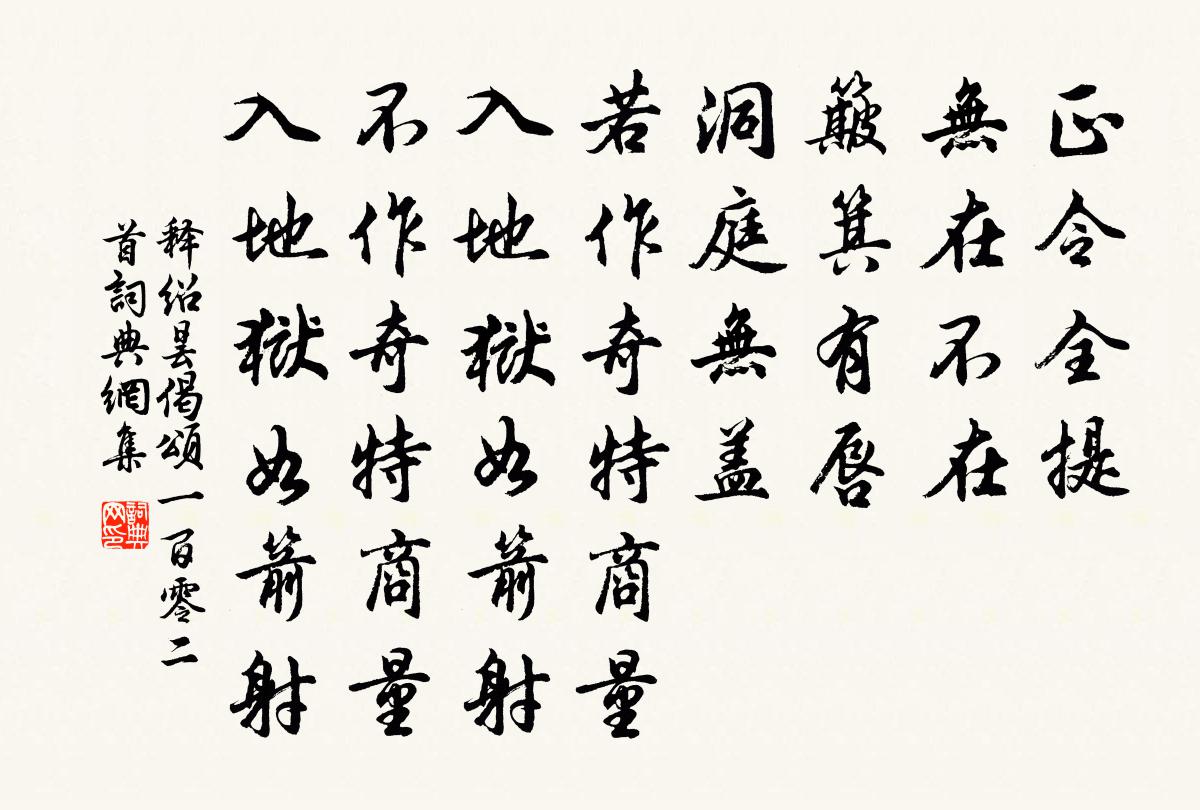 正令全提
無在不在
簸箕有唇
洞庭無盖
若作奇特商量
入地獄如箭射
不作奇特商量
入地獄如箭射
释绍昙偈頌一百零二
首詞典網集
詞典网印